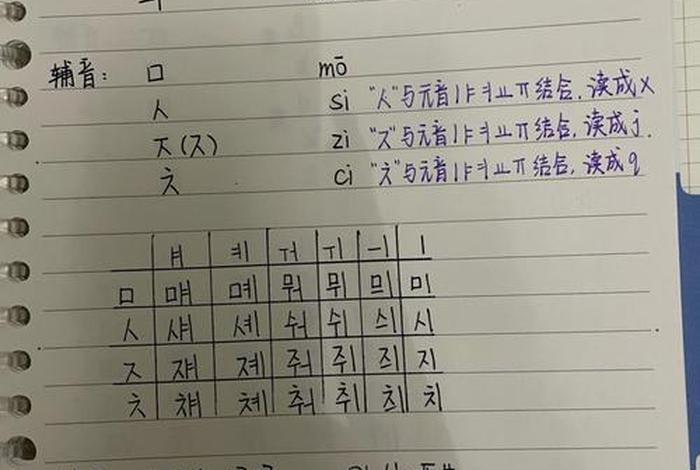 辅音: ㅁ mō
ㅅ si "ㅅ"与元音ㅣㅑㅕㅛㅠ结合,读成x
ㅈ(ㅈ) zi "ㅈ"与元音ㅣㅑㅕㅛㅠ结合,读成j.
ㅊ ci "ㅊ"与元音ㅣㅑㅕㅛㅠ结合,读成q
ㅒ ㅖ ㅝ ㅟ ㅢ ㅣ
ㅁ 먜 몌 뭐 뮈 믜 미
ㅅ 섀 셰 숴 쉬 싀 시
ㅈ 쟤 졔 줘 쥐 즤 지
ㅊ 챼 쳬 춰 취 츼 치